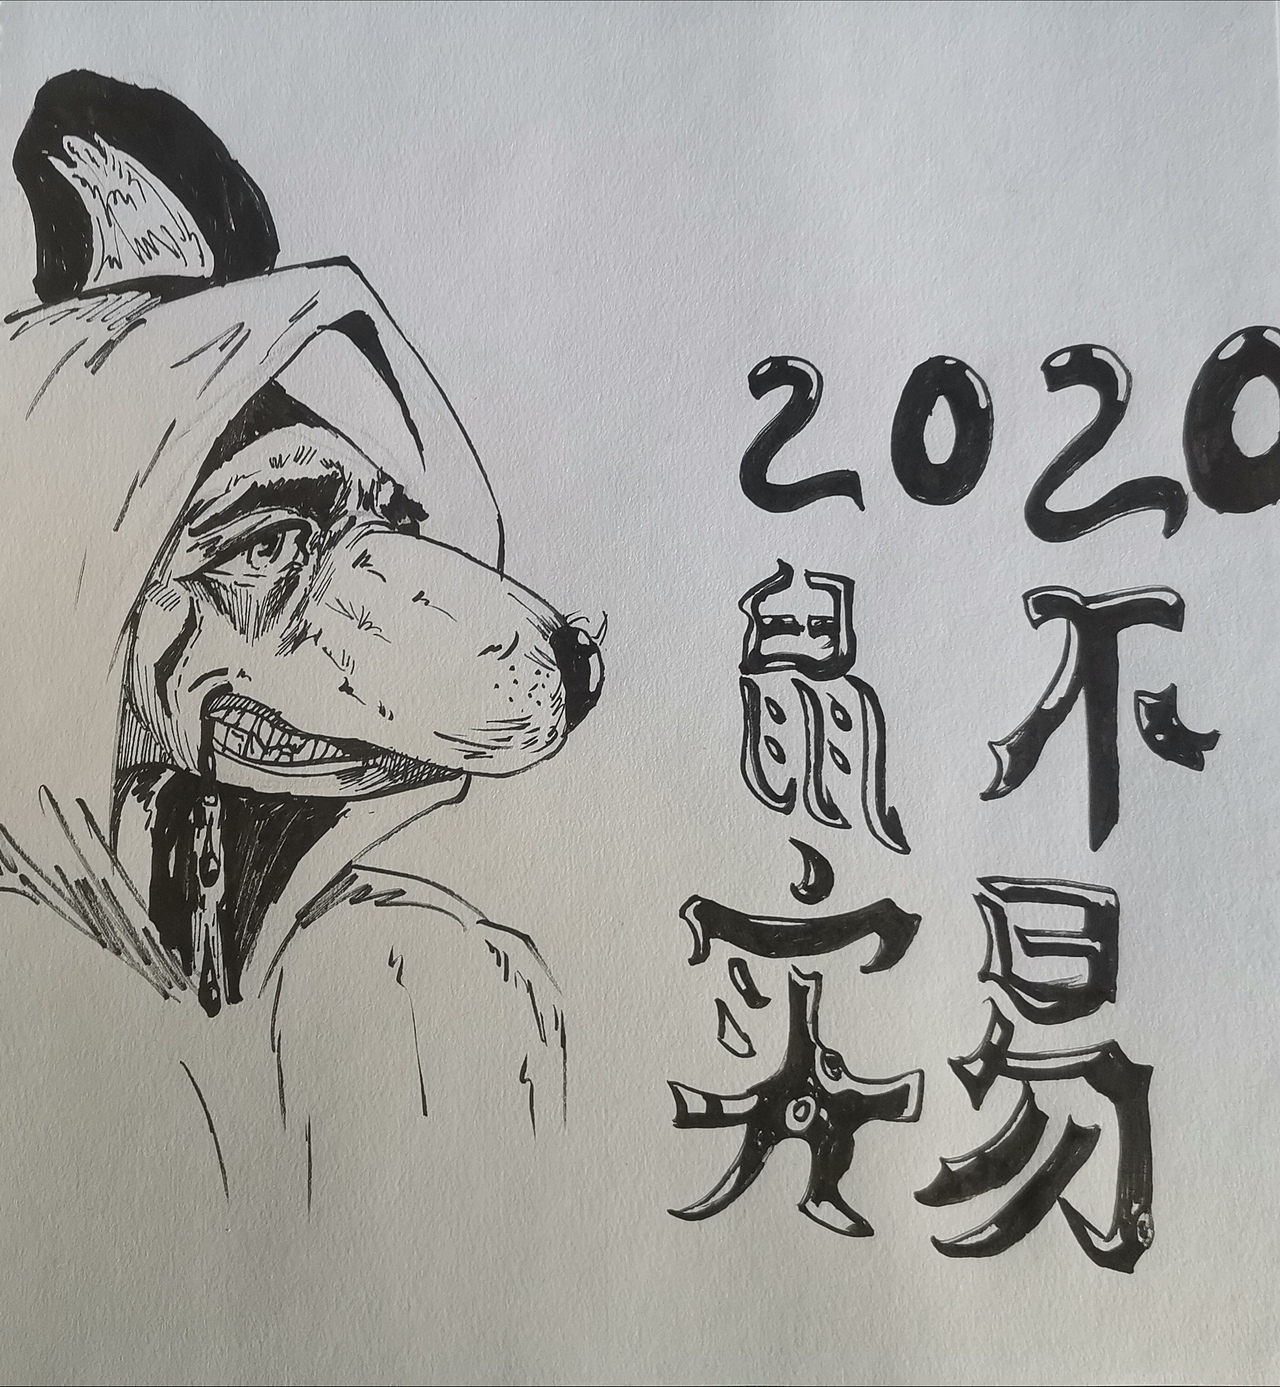 2020
鼠实
不易